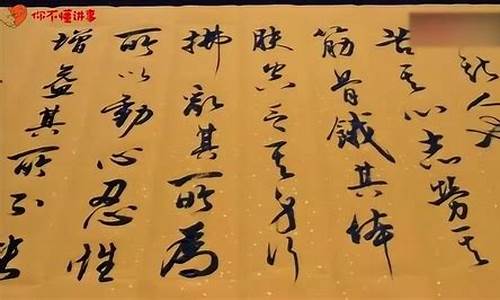 你不懂讲事
人
苦其心志勞其
筋骨餓其体
肤空乏其身行
拂亂其所為
所以動心忍性
增益其所不能